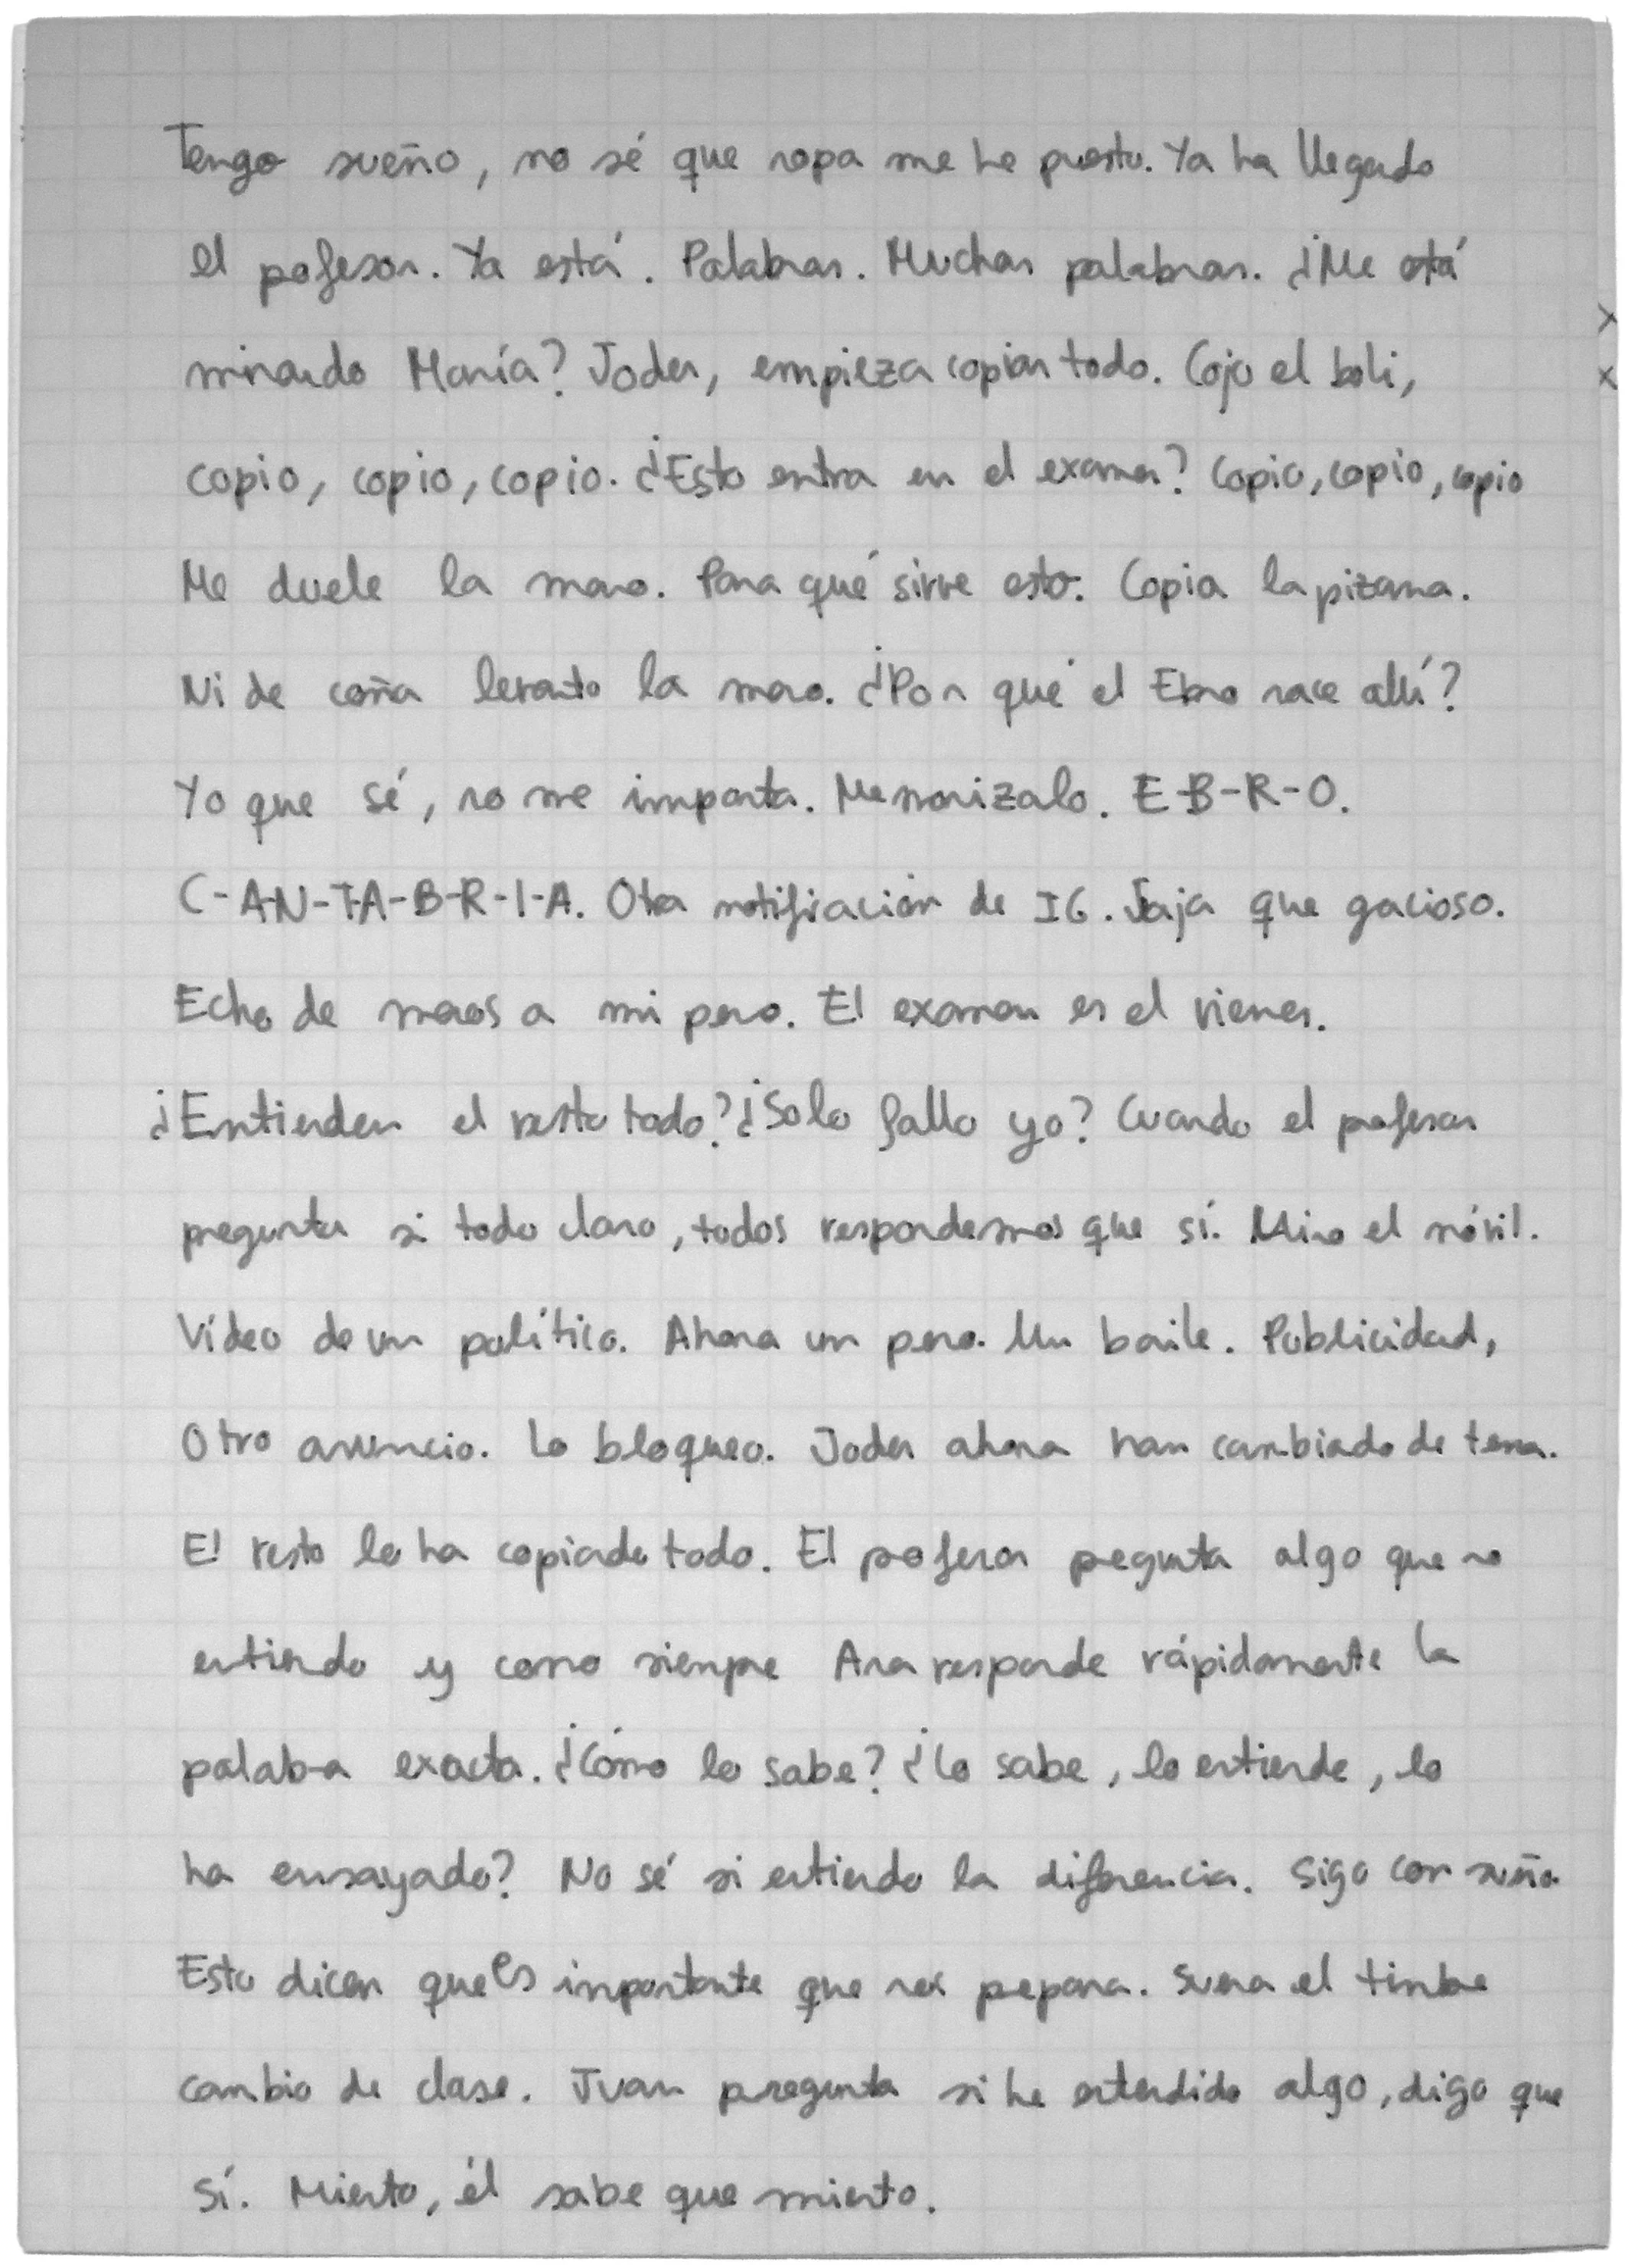 Tengo sueño, no sé que ropa me he puesto. Ya ha llegado
el pofesor. Ya está. Palabras. Muchas palabras. ¿Me está
mirando María? Joder, empieza copiar todo. Cojo el boli,
copio, copio, copio. ¿Esto entra en el examen? Copio, copio, copio
Me duele la mano. Para qué sirve esto. Copia la pizarra.
Ni de coña levanto la mano. ¿Por qué el Ebro nace allí?
Yo que sé, no me importa. Memorizalo. E-B-R-O.
C-A-N-T-A-B-R-I-A. Otra notificación de IG. Jaja que gracioso.
Echo de menos a mi perro. El examen es el viernes.
¿Entienden el resto todo? ¿Solo fallo yo? Cuando el profesor
pregunta si todo claro, todos respondemos que sí. Miro el móvil.
Vídeo de un político. Ahora un perro. Un baile. Publicidad,
Otro anuncio. Lo bloqueo. Joder ahora han cambiado de tema.
El resto lo ha copiado todo. El profesor pregunta algo que no
entiendo y como siempre Ana responde rápidamente la
palabra exacta. ¿Cómo lo sabe? ¿Lo sabe, lo entiende, lo
ha ensayado? No sé si entiendo la diferencia. Sigo con sueño
Esto dicen que es importante que nos prepara. Suena el timbre
cambio de clase. Juan pregunta si he entendido algo, digo que
sí. Miento, él sabe que miento.